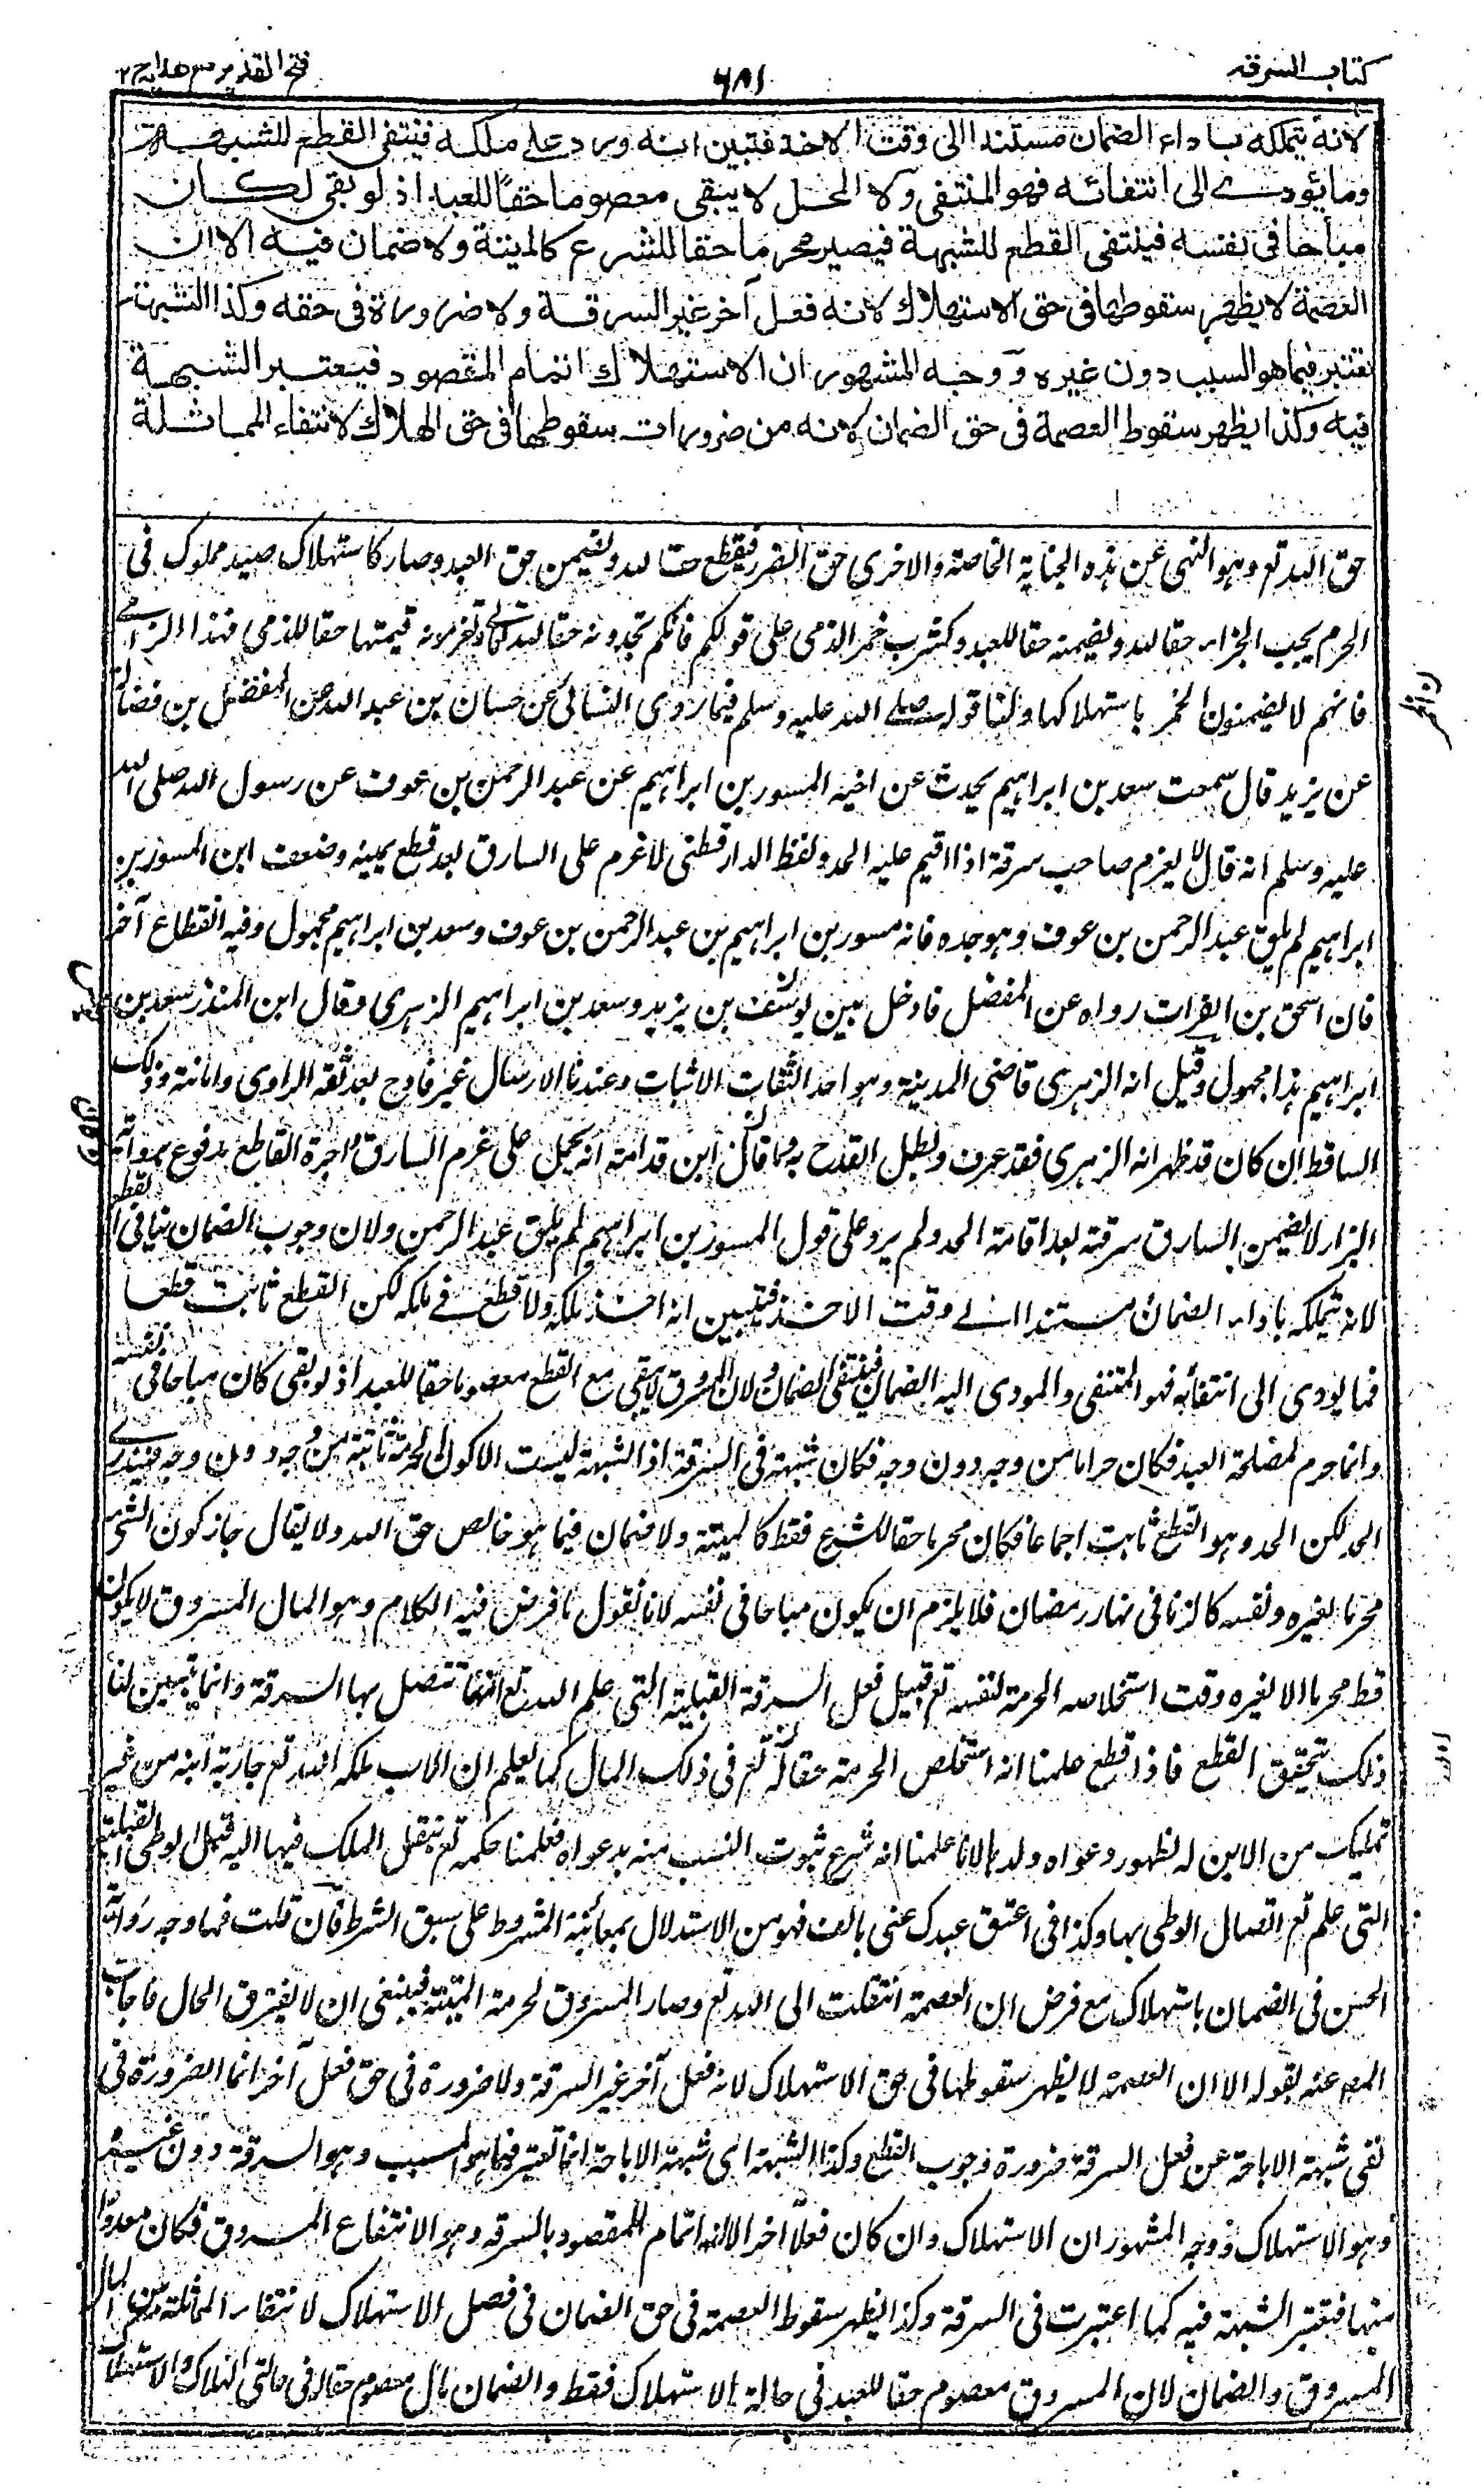 كتاب السرقه
٦٨١
فتح القدير مع هدايه ج ٢
لانه يتملكه باداء الضمان مستندا الى وقت الاخذ فتبين انه ورد على ملكه فينتفى القطع للشبهة
وما يؤدى الى انتفائه فهو المنتفى ولا المحل لا يبقى معصوما حقا للعبد اذ لو بقى لكان
مباحا فى نفسه فينتفى القطع للشبهة فيصير محرما حقا للشرع كالميتة ولا ضمان فيه الا ان
العصمة لا يظهر سقوطها فى حق الاستهلاك لانه فعل آخر غير السرقة ولا ضرورة فى حقه وكذا الشبهة
تعتبر فيما هو السبب دون غيره ووجه المشهور ان الاستهلاك اتمام المقصود فيعتبر الشبهة
فيه وكذا يظهر سقوط العصمة فى حق الضمان لانه من ضرورات سقوطها فى حق الهلاك لانتفاء المماثلة
حق الله تع وهو النهى عن هذه الجناية الخاصة والاخرى حق الضرر فيقطع حقا لله ويضمن حق العبد وصار كاستهلاك صيد مملوك فى
الحرم يجب الجزاء حقا لله ويضمنه حقا للعبد وكشرب خمر الذمى على قولكم فانكم تحدونه حقا لله تعالى وتغرمونه قيمتها حقا للذمى فهذا الزامى
فانهم لا يضمنون الخمر باستهلاكها ولنا قوله صلى الله عليه وسلم فيما روى النسائى عن حسان بن عبد الله عن المفضل بن فضالة
عن يزيد قال سمعت سعد بن ابراهيم يحدث عن اخيه المسور بن ابراهيم عن عبد الرحمن بن عوف عن رسول الله صلى الله
عليه وسلم انه قال لا يغرم صاحب سرقة اذا اقيم عليه الحد ولفظ الدارقطنى لا غرم على السارق بعد قطع يمينه وضعف ابن المسور بن
ابراهيم لم يلق عبد الرحمن بن عوف وهو جده فانه مسور بن ابراهيم بن عبد الرحمن بن عوف وسعد بن ابراهيم مجهول وفيه انقطاع آخر
فان اسحق بن الفرات رواه عن المفضل فادخل بين يوسف بن يزيد وسعد بن ابراهيم الزهرى وقال ابن المنذر سعد بن
ابراهيم هذا مجهول وقيل انه الزهرى قاضى المدينة وهو احد الثقات الاثبات وعندنا الارسال غير قادح بعد ثقة الراوى وامانته وذلك
الساقط ان كان قد ظهر انه الزهرى فقد عرف وبطل القدح به وما قال ابن قدامة انه يحمل على غرم السارق اجرة القاطع مدفوع برواية
البزار لا يضمن السارق سرقته بعد اقامة الحد ولم يرد على قول المسور بن ابراهيم لم يلق عبد الرحمن ولان وجوب الضمان ينافى القطع
لانه يتملكه باداء الضمان مستندا الى وقت الاخذ فتبين انه اخذ ملكه ولا قطع فى ملكه لكن القطع ثابت قطعا
فما يودى الى انتفائه فهو المنتفى والمودى اليه الضمان فينتفى الضمان ولان المسروق لا يبقى مع القطع معصوما حقا للعبد اذ لو بقى كان مباحا فى نفسه
وانما حرم لمصلحة العبد فكان حراما من وجه دون وجه فكان شبهة فى السرقة اذ الشبهة ليست الا كون الحرمة ثابتة من وجه دون وجه فيندرئ
الحد لكن الحد وهو القطع ثابت اجماعا فكان محرما حقا للشرع فقط كالميتة ولا ضمان فيما هو خالص حق الله ولا يقال جاز كون الشئ
محرما لغيره ونفسه كالزنا فى نهار رمضان فلا يلزم ان يكون مباحا فى نفسه لانا نقول ما فرض فيه الكلام وهو المال المسروق لا يكون
قط محرما الا لغيره وقت استخلاصه الحرمة لنفسه تع قبيل فعل السرقة القبلية التى علم الله تع انها تتصل بها السرقة وانما يتبين لنا
ذلك بتحقيق القطع فاذا قطع علمنا انه استخلص الحرمة حقا له تع فى ذلك المال كما يعلم ان الاب ملكه الله تع جارية ابنه من غير
تمليك من الابن له لظهور دعواه ولدها لانا علمنا انه شرع ثبوت النسب منه بدعواه فعلمنا حكمه تع بنقل الملك فيها اليه قبيل الوطى القبلية
التى علم تع اتصال الوطى بها وكذا فى اعتق عبدك عنى بالف فهو من الاستدلال بمعاينة المشروط على سبق الشرط فان قلت فما وجه رواية
الحسن فى الضمان باستهلاك مع فرض ان العصمة انتقلت الى الله تع وصار المسروق لحرمة الميتة فينبغى ان لا يفترق الحال فاجاب
المصر عنه بقوله الا ان العصمة لا يظهر سقوطها فى حق الاستهلاك لانه فعل آخر غير السرقة ولا ضرورة فى حق فعل آخر انما الضرورة فى
نفى شبهة الاباحة عن فعل السرقة ضرورة وجوب القطع وكذا الشبهة اى شبهة الاباحة انما تعتبر فيما هو السبب وهو السرقة دون غيره
وهو الاستهلاك ووجه المشهور ان الاستهلاك وان كان فعلا آخر الا انه اتمام للمقصود بالسرقة وهو الانتفاع بالمسروق فكان معدودا
منها فتعتبر الشبهة فيه كما اعتبرت فى السرقة وكذا يظهر سقوط العصمة فى حق الضمان فى فصل الاستهلاك لانتفاء المماثلة بين المال
المسروق والضمان لان المسروق معصوم حقا للعبد فى حالة الاستهلاك فقط والضمان مال معصوم حقا له فى حالتى الهلاك والاستهلاك